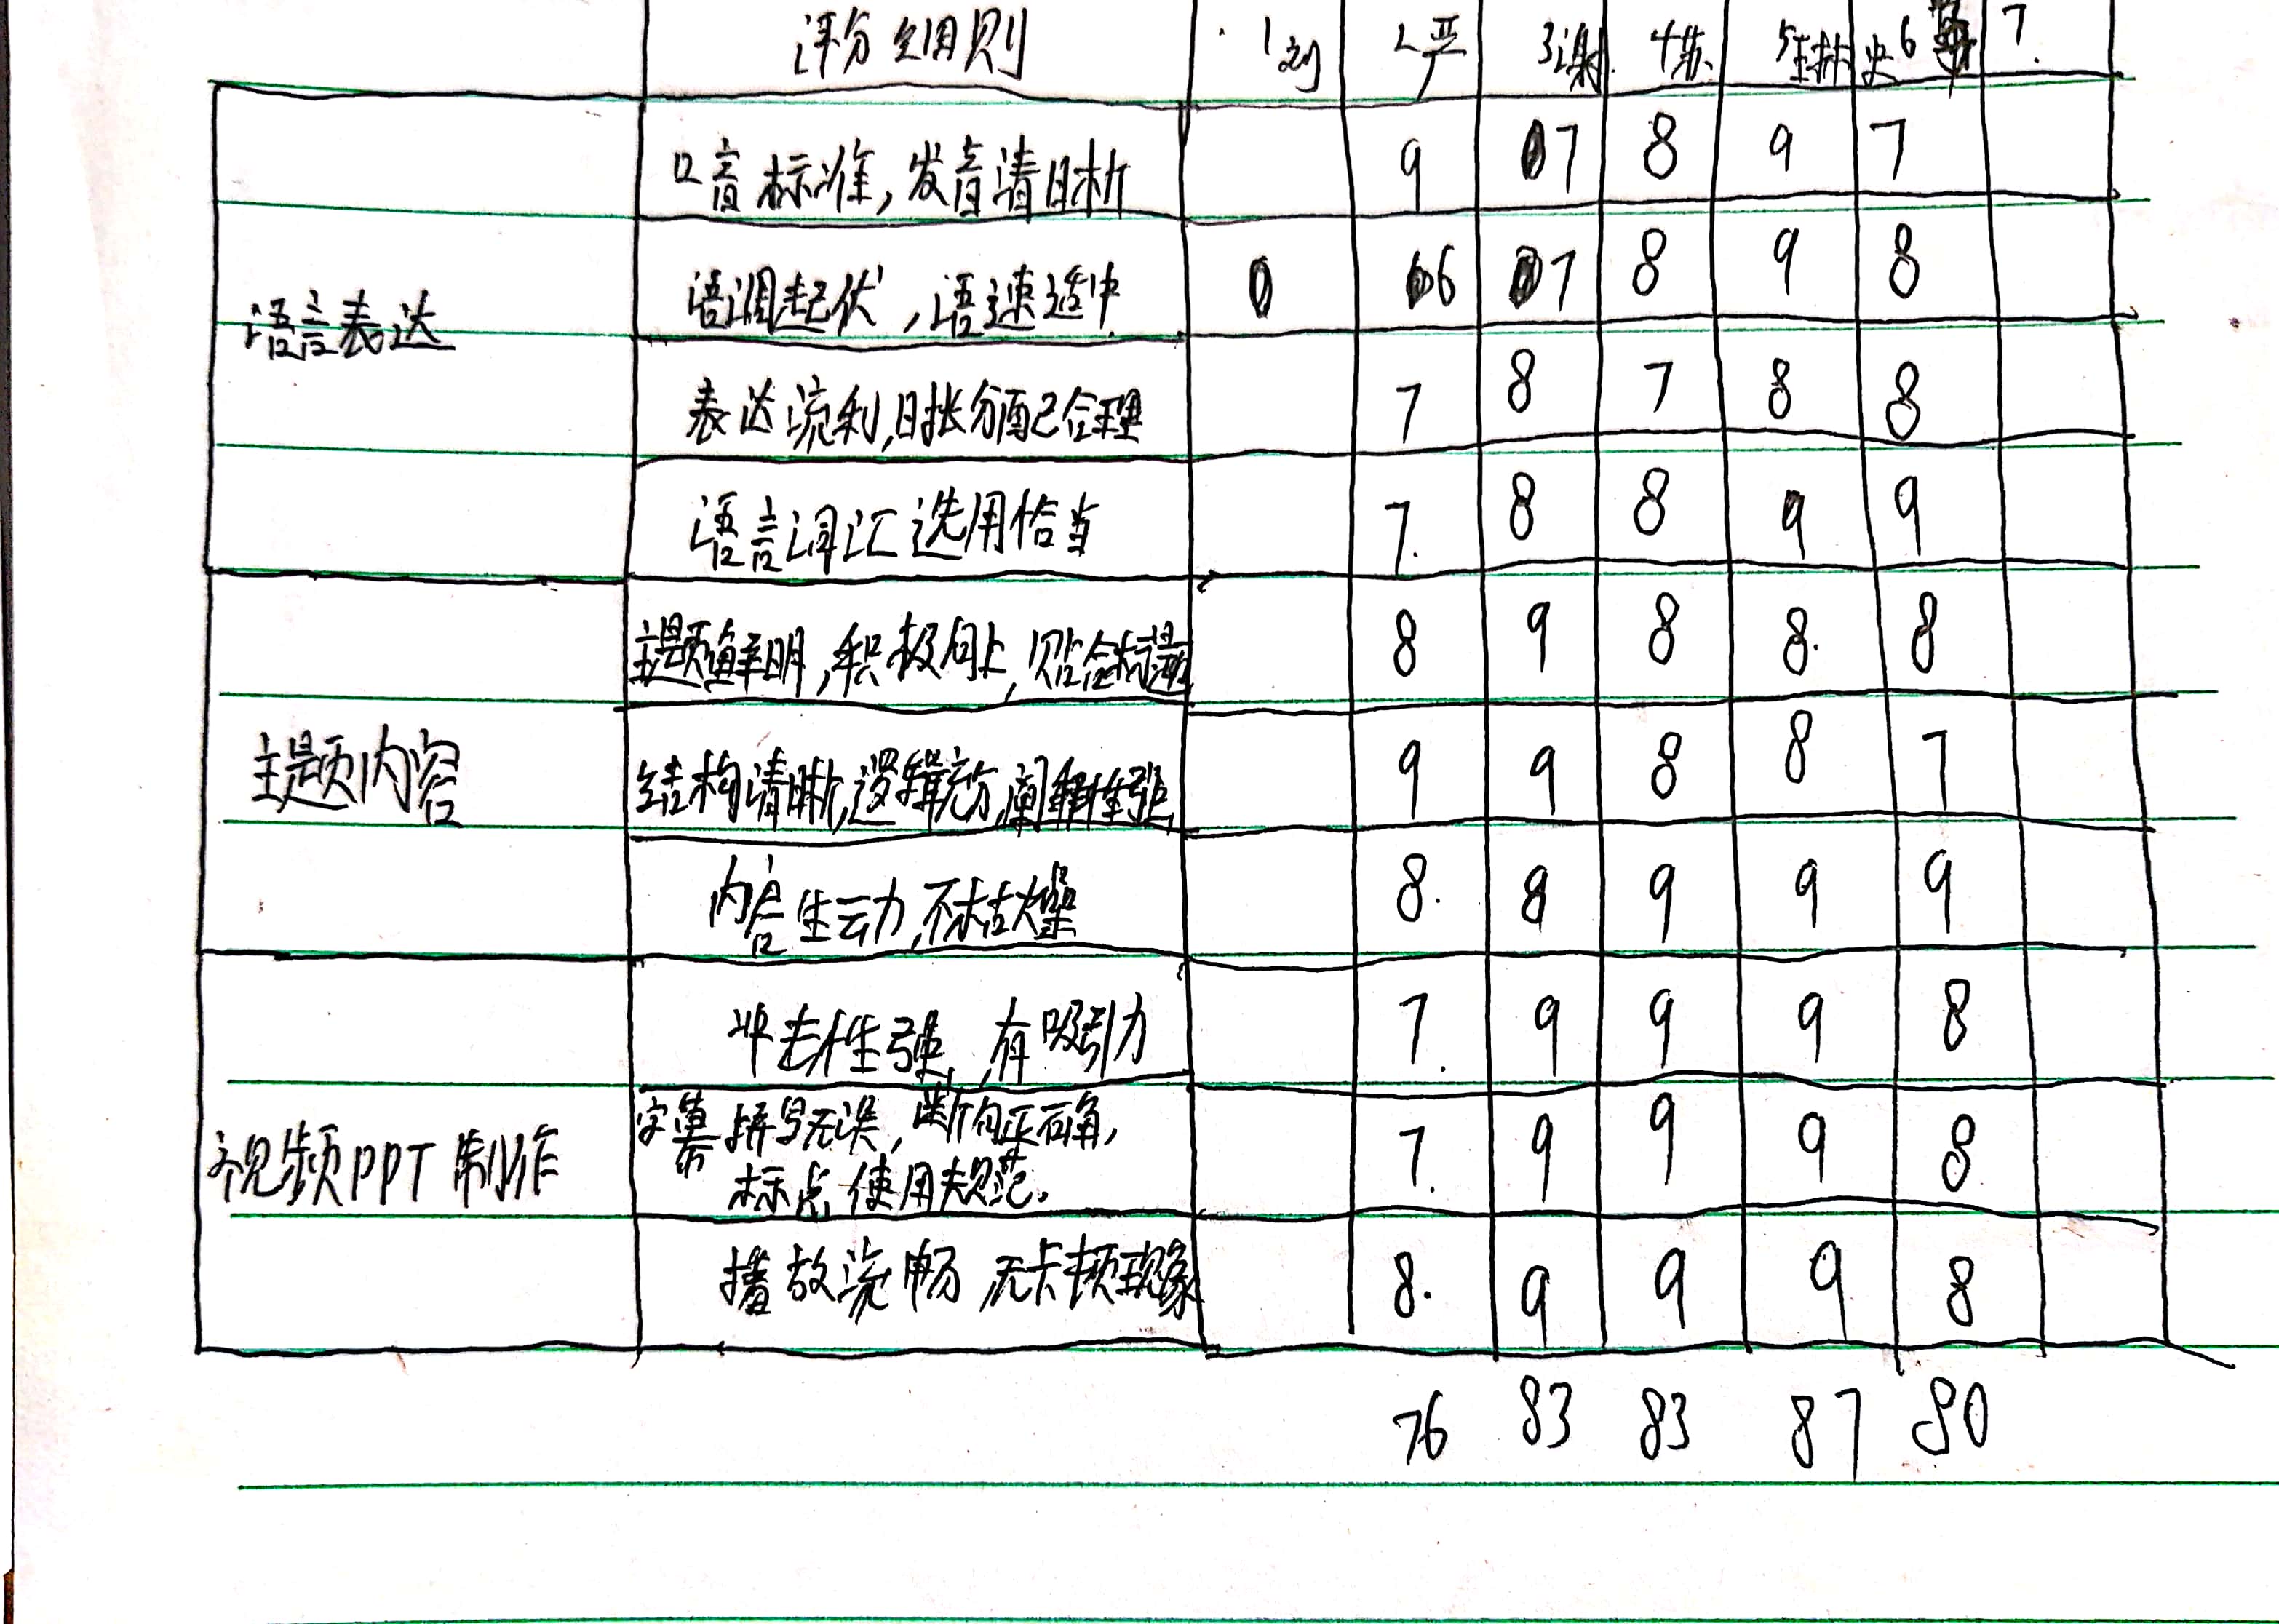 评分细则 1刘 2严 3谢 4苏 5林 史6 7.
口音标准,发音清晰 9 7 8 9 7
语言表达 语调起伏,语速适中 0 6 7 8 9 8
表达流利,时长分配合理 7 8 7 8 8
语言词汇选用恰当 7. 8 8 9 9
主题鲜明,积极向上,贴合标题 8 9 8 8. 8
主题内容 结构清晰,逻辑充分,阐释性强 9 9 8 8 7
内容生动,不枯燥 8. 8 9 9 9
冲击性强,有吸引力 7. 9 9 9 8
视频PPT制作 字幕拼写无误,断句正确, 7. 9 9 9 8
标点使用规范.
播放流畅 无卡顿现象 8. 9 9 9 8
76 83 83 87 80